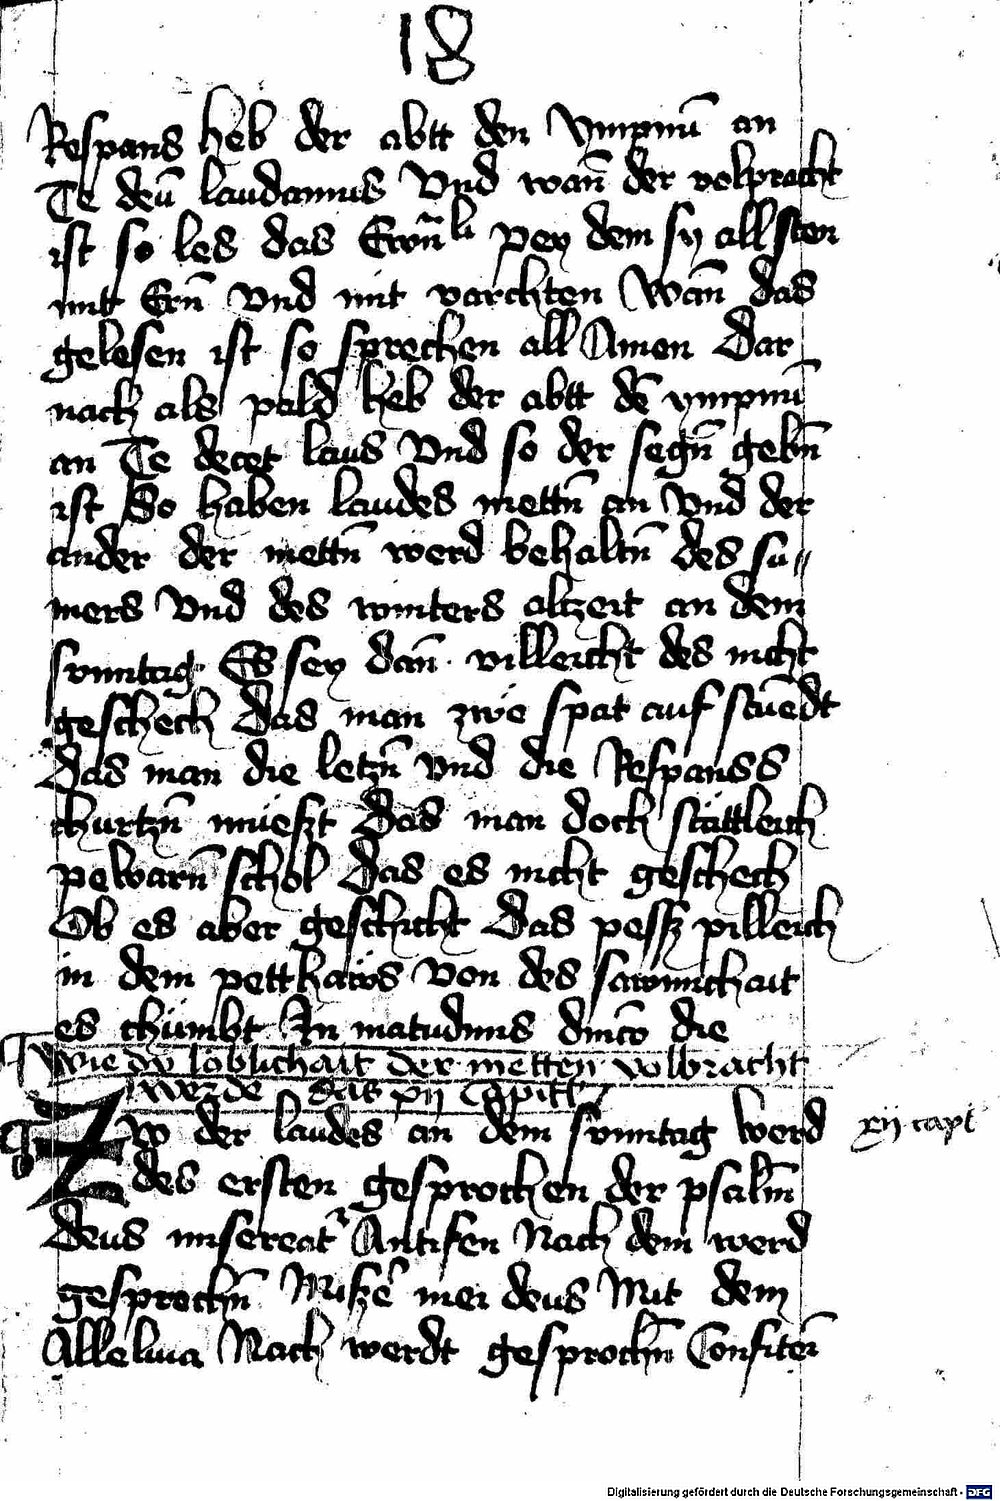 18
Respans heb der abtt den ympnū an
Te deū laudamus Vnd wan̄ der volpracht
ist so les das Ewn̄li pey dem sy all sten
mit Ern̄ vnd mit varchten Wan̄ das
gelesen ist so sprechen all Amen Dar
nach als pald heb der abtt dē ympnū
an Te decet laus Vnd so der segn̄ gebn̄
ist So haben laudes mettn̄ an Vnd der
ander der mettn̄ werd behaltn̄ des su//
mers Vnd des winters alczeit an dem
sunntag Es sey dan̄ villeicht des nicht
geschech Das man zwe spat auf stüedt
Das man die letzn̄ vnd die Respanss
churtzn̄ müeszt Das man doch stättleich
pewarn̄ schol Das es nicht geschech
Ob es aber geschicht Das pessz pilleich
in dem petthaws von des sawmichait
es chümbt In matudinis dm̄co die
Wie dy loblichait der metten volbracht
werde das xij Capitl
Zw der laudes an dem sunntag werd
xij capt
des ersten gesprochen der psalm̄
Deus misereatr Antifen Nach dem werd
gesprochn̄ Misze mei deus Mit dem
Alleluia Nach werdt gesprochn̄ Confitei
Digitalisierung gefördert durch die Deutsche Forschungsgemeinschaft - DFG